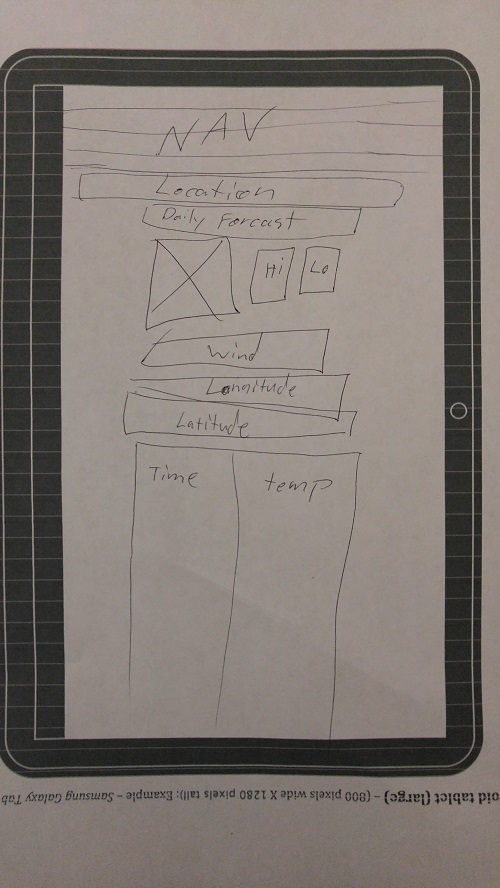 NAV
Location
Daily Forcast
Hi Lo
Wind
Longitude
Latitude
Time temp
oid tablet (large) – (800 pixels wide X 1280 pixels tall): Example – Samsung Galaxy Tab